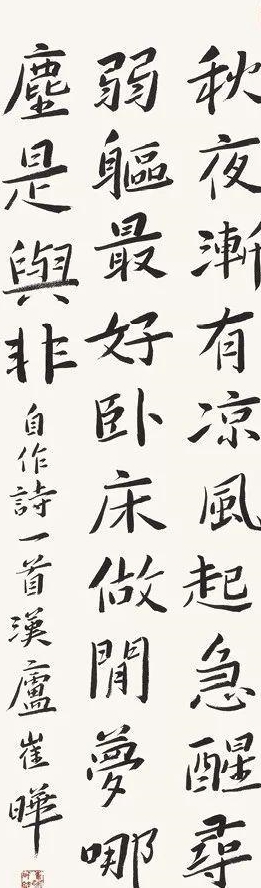 秋夜漸有凉風起急醒尋
弱軀最好卧床做閒夢哪
塵是與非
自作詩一首漢廬崔曄